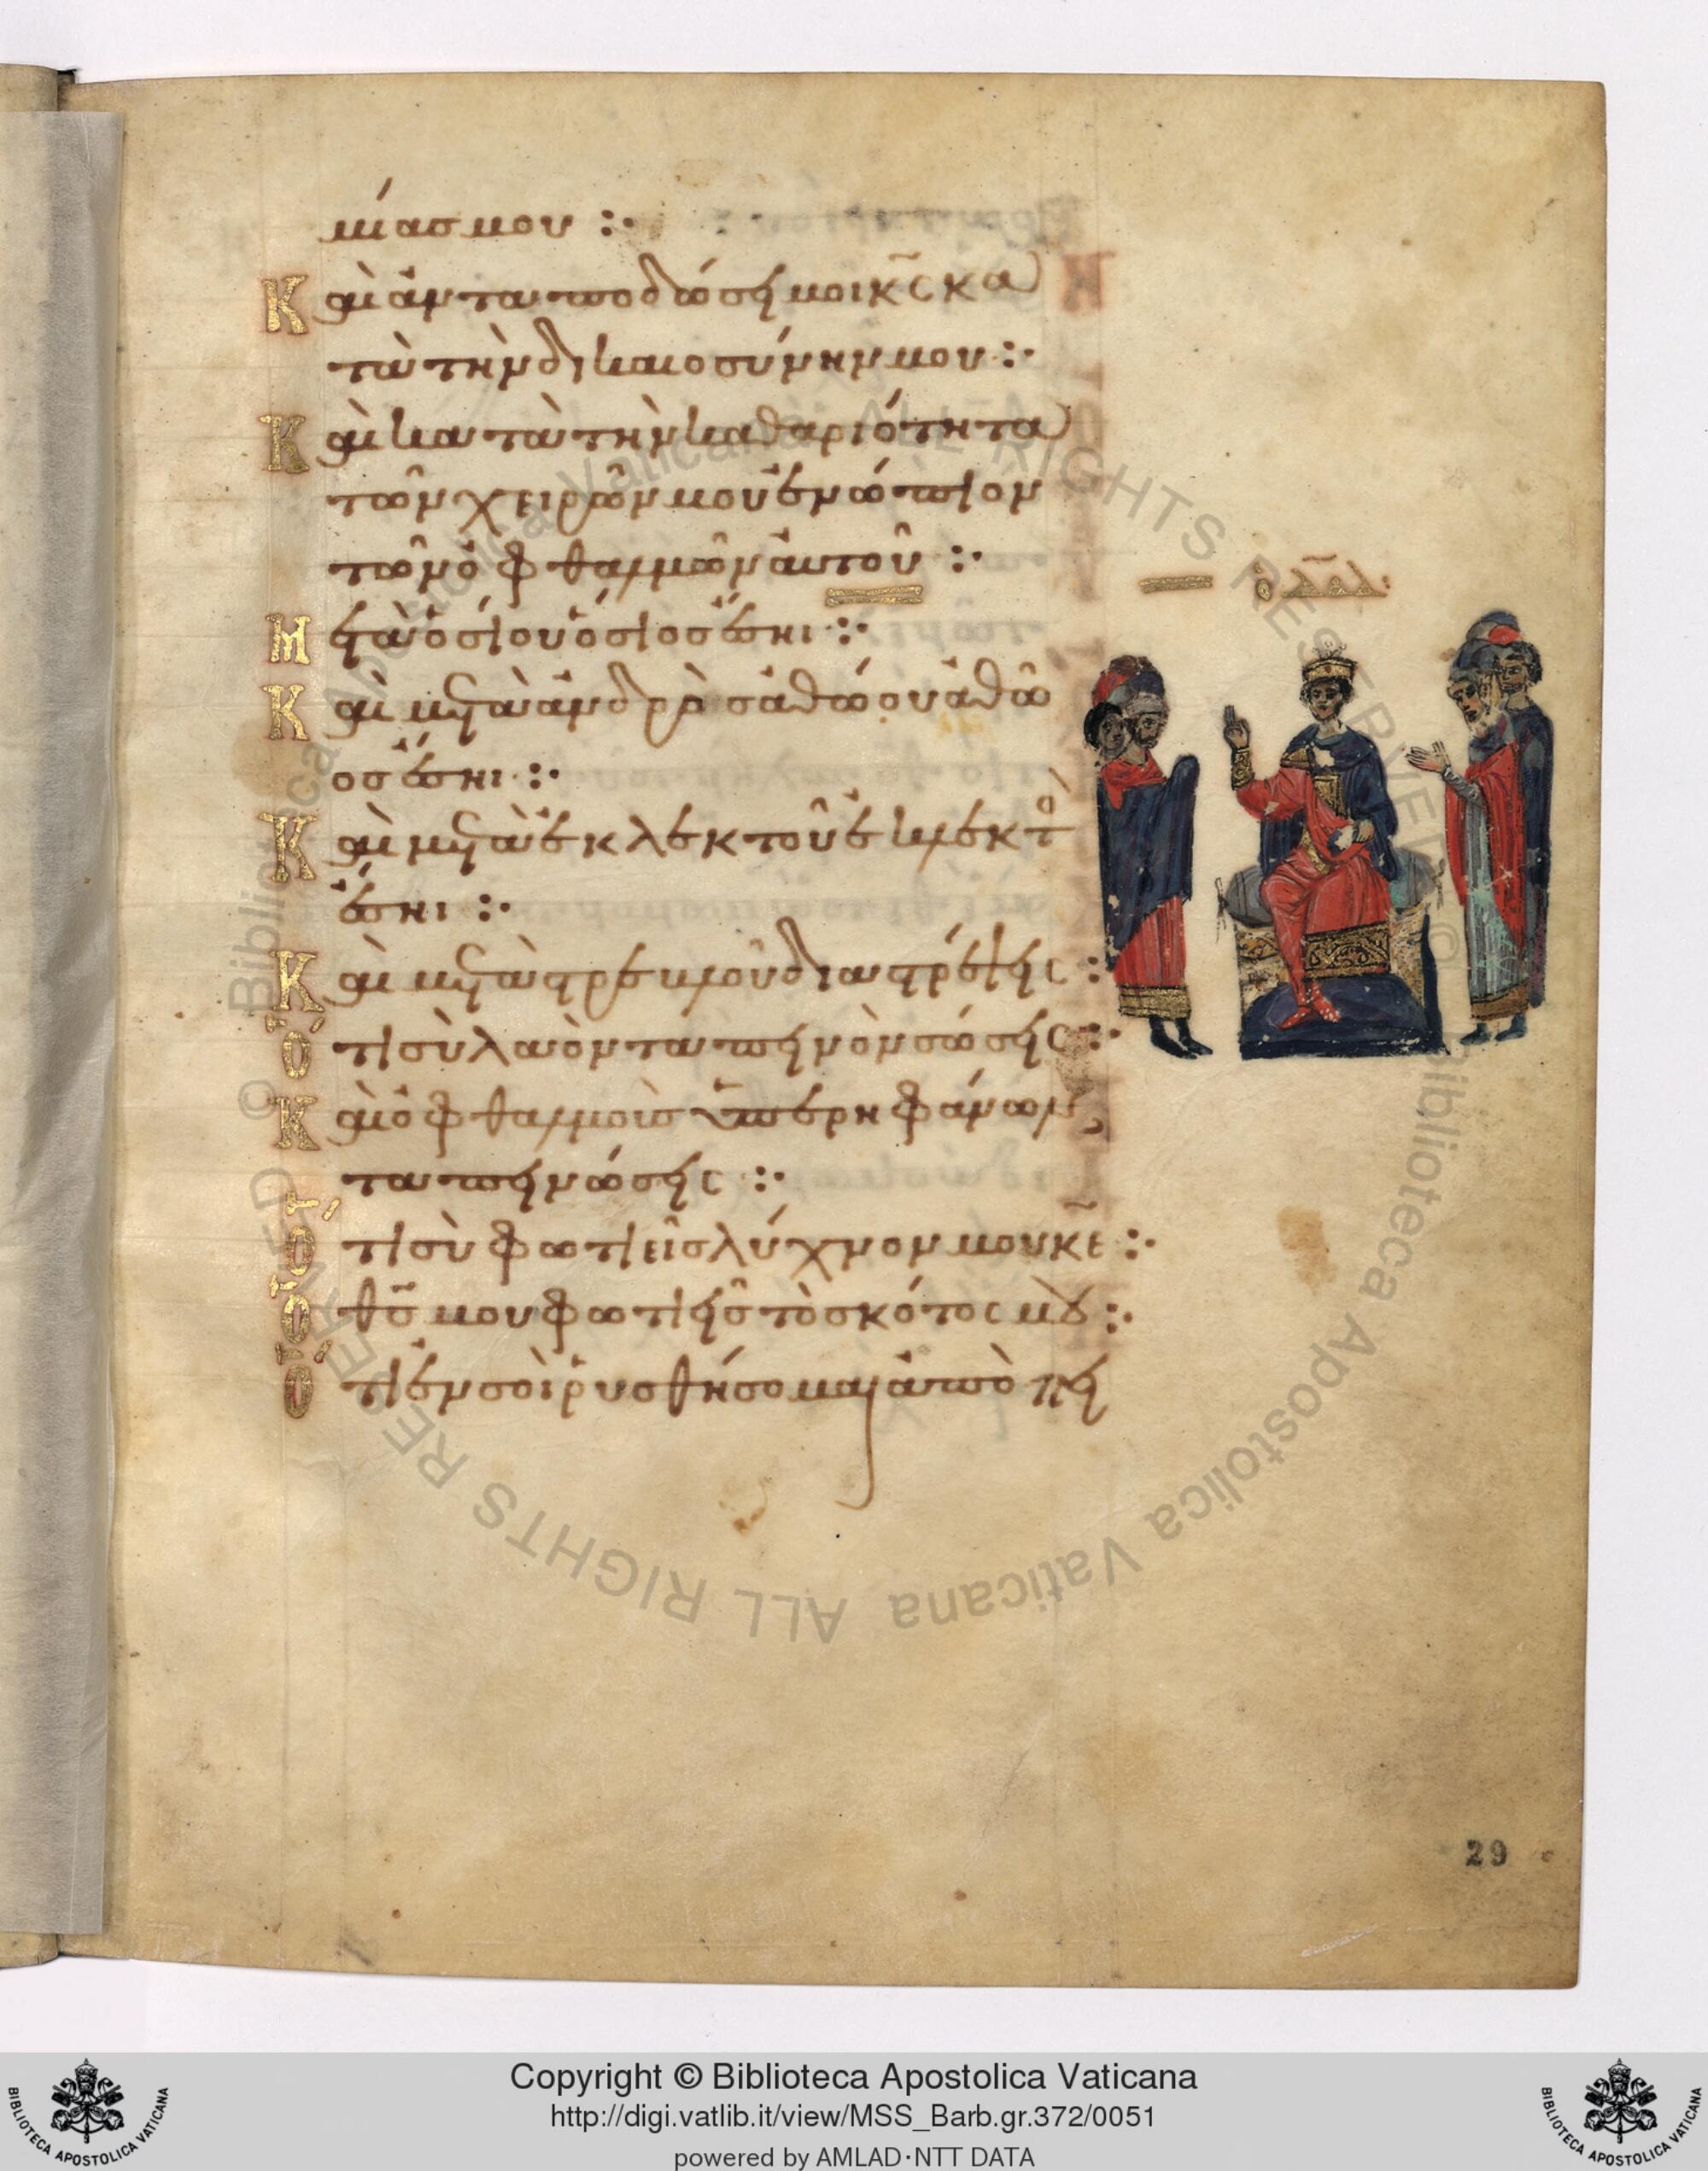 μίας μου :·
Καὶ ἀνταποδώσει μοι κ̅ς̅ κα
τὰ τὴν δικαιοσύνην μου :·
Καὶ κατὰ τὴν καθαριότητα
τῶν χειρῶν μου ἐνώπιον
τῶν ὀφθαλμῶν αὐτοῦ :·
ὁ δα̅δ̅
Μετὰ ὁσίου ὅσιος ἔσηι :·
Καὶ μετὰ ἀνδρὸς ἀθώου ἀθῶ
ος ἔσηι :·
Καὶ μετὰ ἐκλεκτοῦ ἐκλεκτὸ
ἔσηι :·
Καὶ μετὰ στρεβλοῦ διαστρέψεις :·
Ὅτι σὺ λαὸν ταπεινὸν σώσεις :·
Καὶ ὀφθαλμοὺς ὑπερηφάνων
ταπεινώσεις :·
Ὅτι σὺ φωτιεῖς λύχνον μου κ̅ε̅ :·
Ὁ θ̅ς̅ μου φωτιεῖς τὸ σκότος μου :·
Ὅτι ἐν σοὶ ῥυσθήσομαι ἀπὸ πει
29
Copyright © Biblioteca Apostolica Vaticana
http://digi.vatlib.it/view/MSS_Barb.gr.372/0051
powered by AMLAD·NTT DATA
BIBLIOTECA APOSTOLICA VATICANA
BIBLIOTECA APOSTOLICA VATICANA